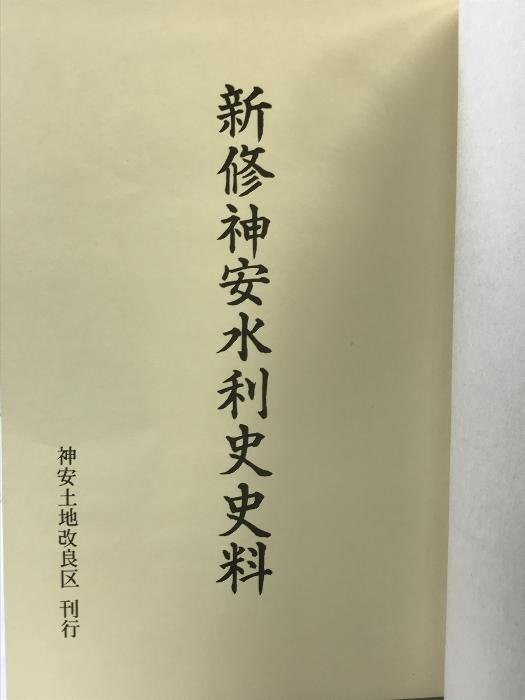 新修神安水利史史料
神安土地改良区 刊行